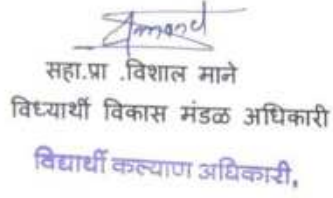 सहा.प्रा .विशाल माने
विध्यार्थी विकास मंडळ अधिकारी
विद्यार्थी कल्याण अधिकारी,